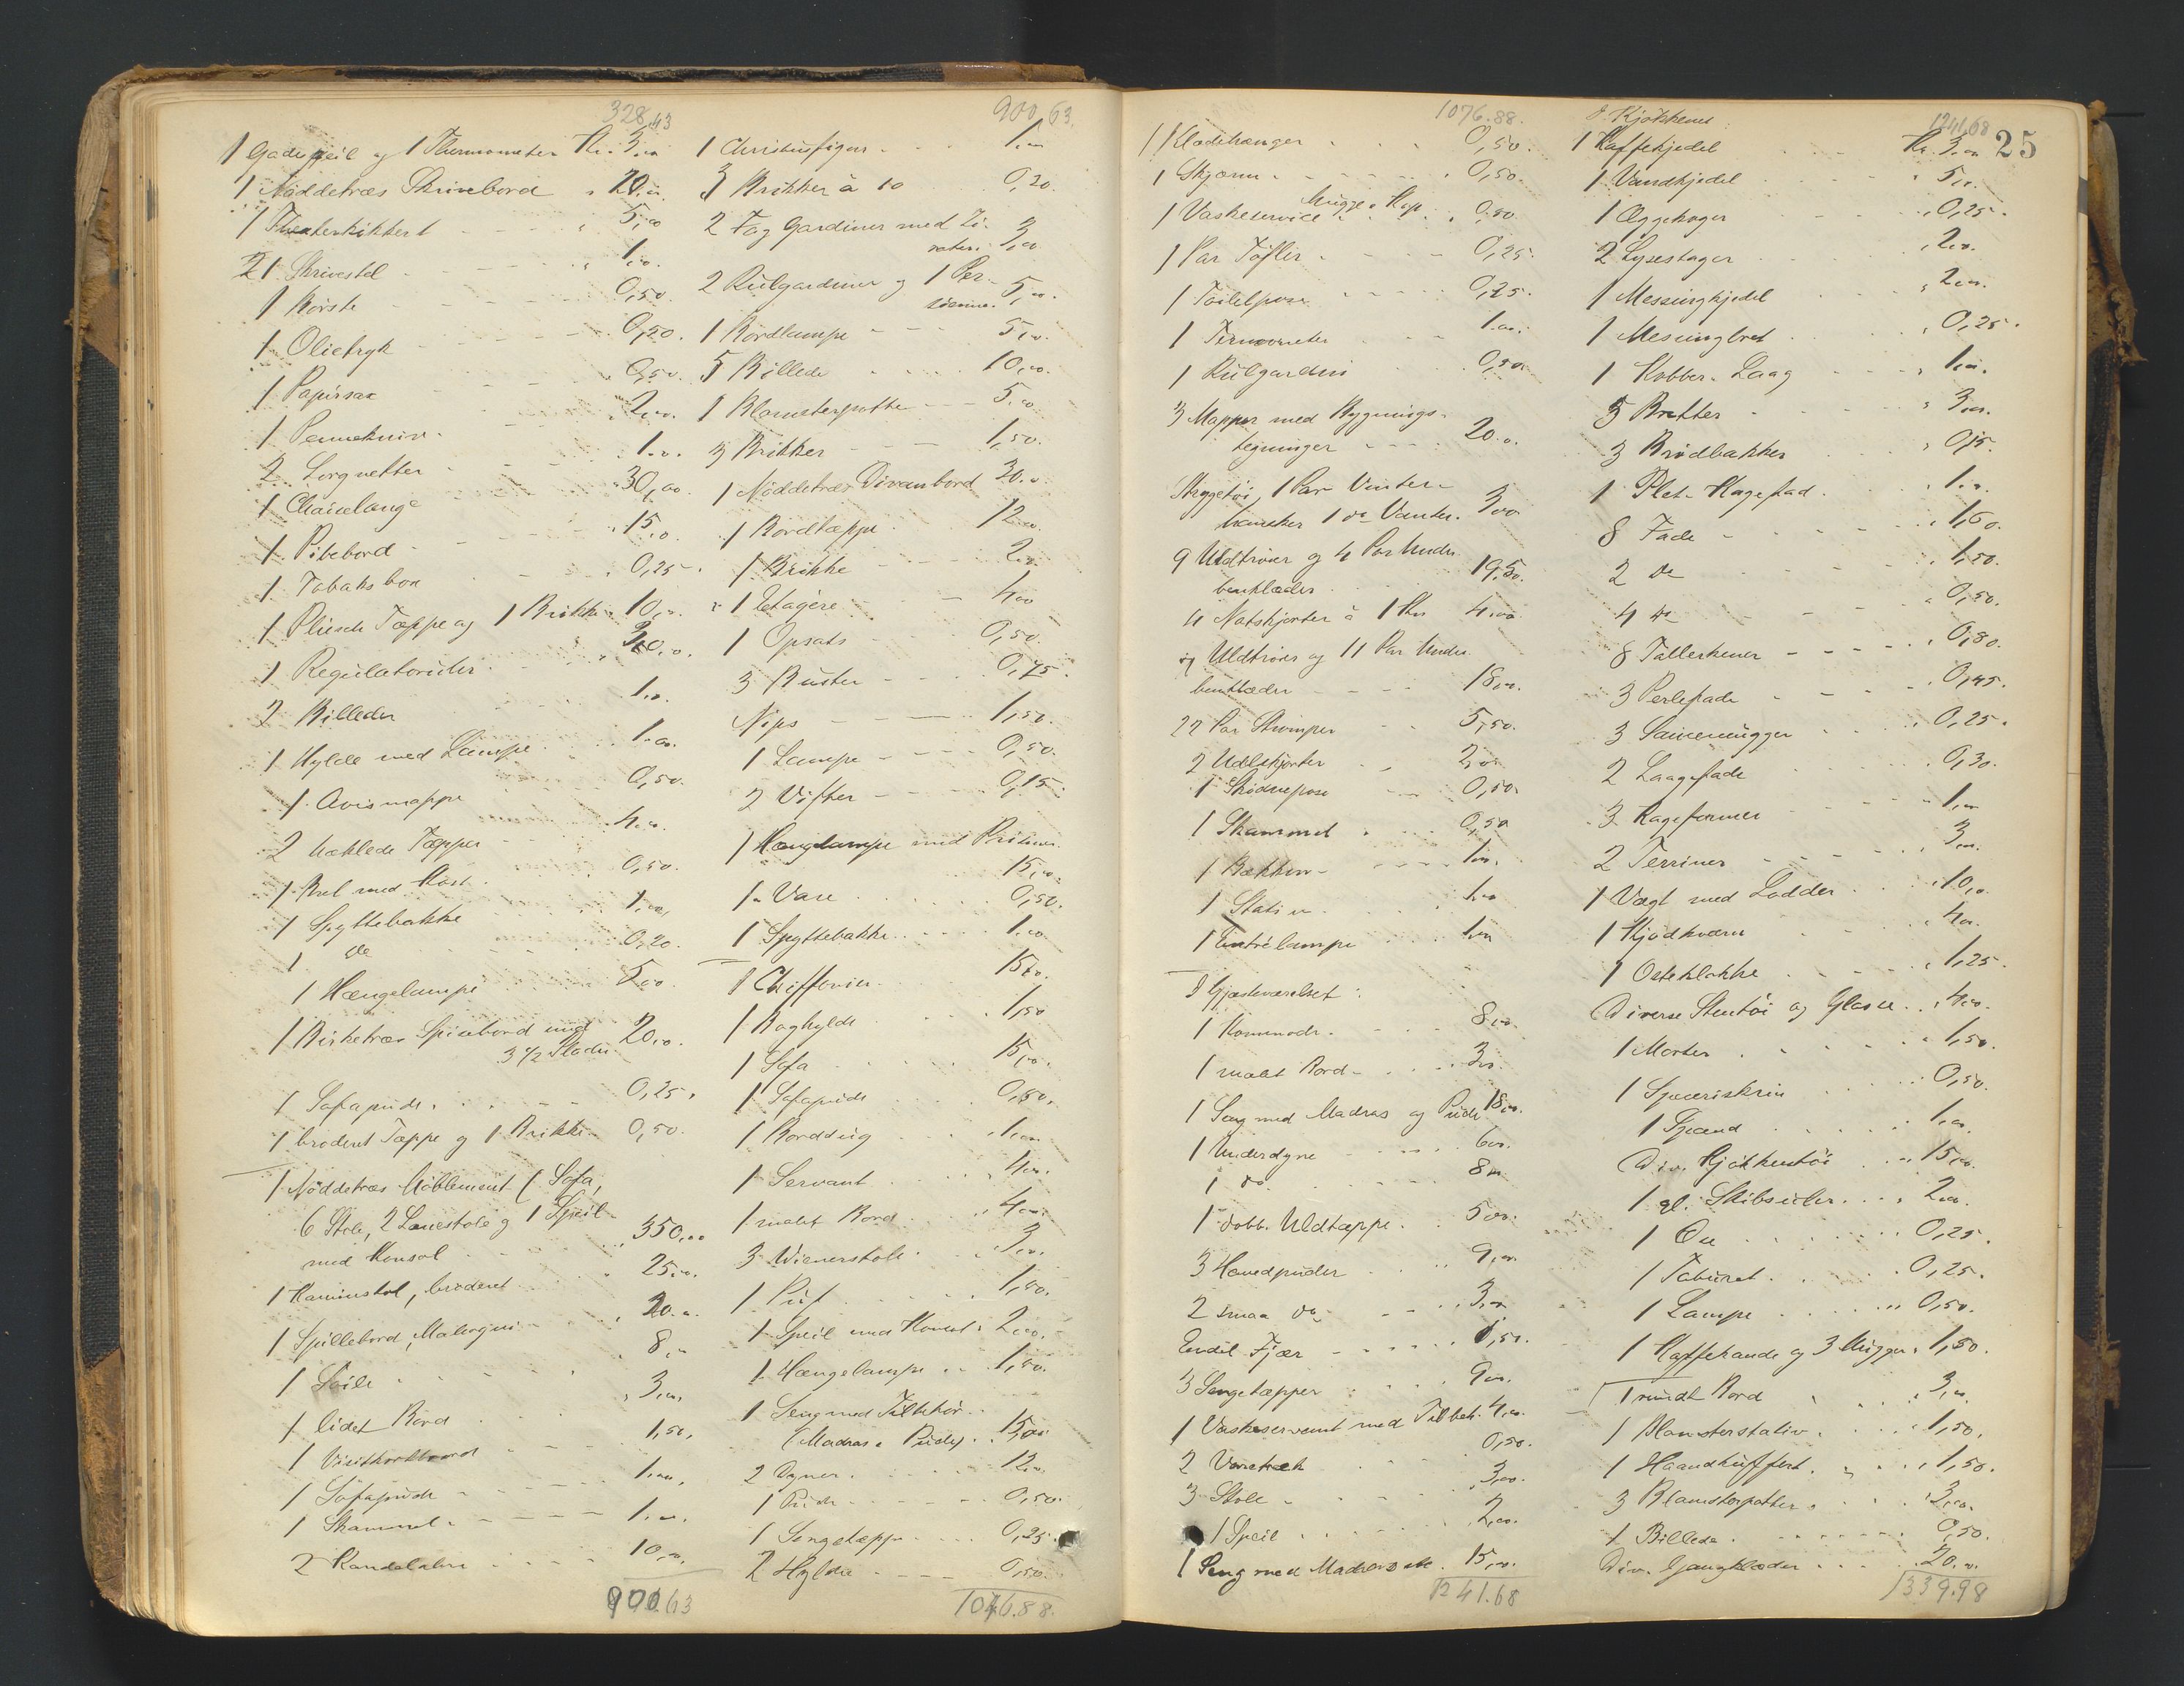 328,43
1 Gadespeil og 1 Thermometer Kr. 3,00
1 Nøddetræs Skrivebord „ 20,00
1 Theaterkikkert „ 5,00
21 Skrivestel „ 1,00.
1 Børste 0,50.
1 Olietryk 0,20.
1 Papirsax 0,50.
1 Pennekniv. 2,00.
2 Lorgnetter 1.00.
1 Chaiselange 30,00
1 Pibebord 15,00
1 Tobaksbox 0,25.
1 Pliesch Tæppe og 1 Brikke 10,00.
1 Regulatoruhr 20,00.
2 Billeder 1.00.
1 Hylde med Lampe 1.00.
1 Avismappe 0,50.
2 hæklede Tæpper 4.00.
1 Bret med Kost 0,50.
1 Spyttebakke 1,00,
1 do 0,20.
1 Hængelampe 5,00.
1 Birketræs Spisebord med
3 1/2 Plader 20,00.
1 Sofapude. 0,25.
1 broderet Tæppe og 1 Brikke 0,50.
1 Nøddetræs Möblement (Sofa,
6 Stole, 2 Lænestole og 1 Speil
med Konsol „ 350,00
1 Kaminstol, broderet 25,00.
1 Spillebord, Mahogni „ 20.00.
1 Søile „ 8,00
1 lidet Bord „ 3,00,
1 Visitkortbord 1,50,
1 Sofapude 1.00,
1 Skammel 1.00.
2 Kandelabre 10,00,
900.63
900.63.
1 Christusfigur 1,00
3 Brikker à 10 0,20.
2 Fag Gardiner med Zi-
rater. 3,00
2 Rulgardiner og 1 Per-
sienne. 5,00.
1 Bordlampe 5,00.
5 Billede 10,00.
1 Blomsterpotte 5.00
3 Brikker 1,50.
1 Nøddetræs Divanbord 30.00
1 Bordtæppe 12.00
1 Brikke 2.00
1 Etagére 4,00
1 Opsats 0,50.
3 Buster 0,75.
Nips 1,50.
1 Lampe 0,50.
2 Vifter 0,15.
1 Hængelampe med Prismer.
15,00.
1 Vase 0,50.
1 Spyttebakke 1.00
1 Chiffonier. 15,00.
1 Boghylde 1,50
1 Sofa 15,00.
1 Sofapude 0,50.
1 Borddug 1,00
1 Servant 4,00.
1 malt Bord 4,00.
3 Wienerstole 3,00.
1 Puf 1,50.
1 Speil med Konsol 2,00.
1 Hængelampe 1,50.
1 Seng med Tilbehør
(Madras & Pude). 15,00
2 Dyner. 12.00,
1 Pude 0,50.
1 Sengetæppe 0,25.
2 Hylder 0,50.
1076.88.
1076.88.
1 Klædehænger 0,50.
1 Skjærm 0,50.
1 Vaskeservice Mugge & Kop 0,50
1 Par Töfler 0,25.
1 Toiletpose 0,25.
1 Termometer 1.00.
1 Rulgardin 0,50.
3 Mapper med Bygnings-
tegninger 20.00.
Skyggetøi, 1 Par Vinter-
hansker 1 do Vanter. 3,00
9 Uldtröier og 4 Par Under-
benklæder. 19,50.
4 Natskjorter à 1 Kr 4.00.
7 Uldtröier og 11 Par Under-
benklæder 18,00.
22 Par Strømper 5,50.
2 Uldskjorter 2,00
1 Skidnepose 0,50.
1 Skammel 0,50
1 Bækken 1.00.
1 Stativ 1.00
1 Entrélampe 1.00
I Gjæsteværelset:
1 Kommode. 8,00.
1 malet Bord 3,00.
1 Seng med Madras og Pude 18,00.
1 Underdyne 6,00.
1 do. 8,00.
1 dobb. Uldtæppe. 5,00.
3 Hovedpuder 9,00.
2 smaa do 3,00
Endel Fjær 1,50.
3 Sengetæpper 9,00.
1 Vaskeservant med Tilbeh. 4,00.
2 Vanstræk 0,50.
3 Stole 3,00.
1 Speil 2,00.
1 Seng med Madras etc. 15,00.
1241.68
I Kjøkkenet:
1241.68
25
1 Kaffekjedel Kr. 3,00
1 Vandkjedel „ 5,00.
1 Æggekoger „ 0,25.
2 Lysestager „ 2,00.
1 Messingkjedel „ 2,00.
1 Messingbret „ 0,25.
1 Kobber-Laag „ 1,00.
5 Bretter „ 3,00.
3 Brödbakker „ 0,15.
1 Plet-Kagefad. 1.00.
8 Fade 1,60.
2 do 1,50.
4 do 0,50.
8 Tallerkener 0,80.
3 Perlefade 0,45.
3 Sausemugger 0,25.
2 Laagefade 0,30.
3 Kageformer 1,00
2 Terriner 3,00.
1 Vægt med Lodder 10,00.
1 Kjødkværn 4,00.
1 Osteklokke 1,25.
Diverse Stentöi og Glasse. 4,00.
1 Morter 1,50.
1 Speceriskrin 0,50.
1 Spand 1,00.
Div. Kjøkkentöi 15,00.
1 gl. Skibsuhr. 2,00.
1 Øse 0,25.
1 Taburet. 0,25.
1 Lampe 0,50.
1 Kaffekande og 3 Mugger. 1,50.
1 rundt Bord 3,00.
1 Blomsterstativ. 1,50,
1 Haandkuffert. 1,50.
3 Blomsterpotter. 3,00.
1 Billede. 0,50.
Div. Gangklæder 20.00.
1339.98